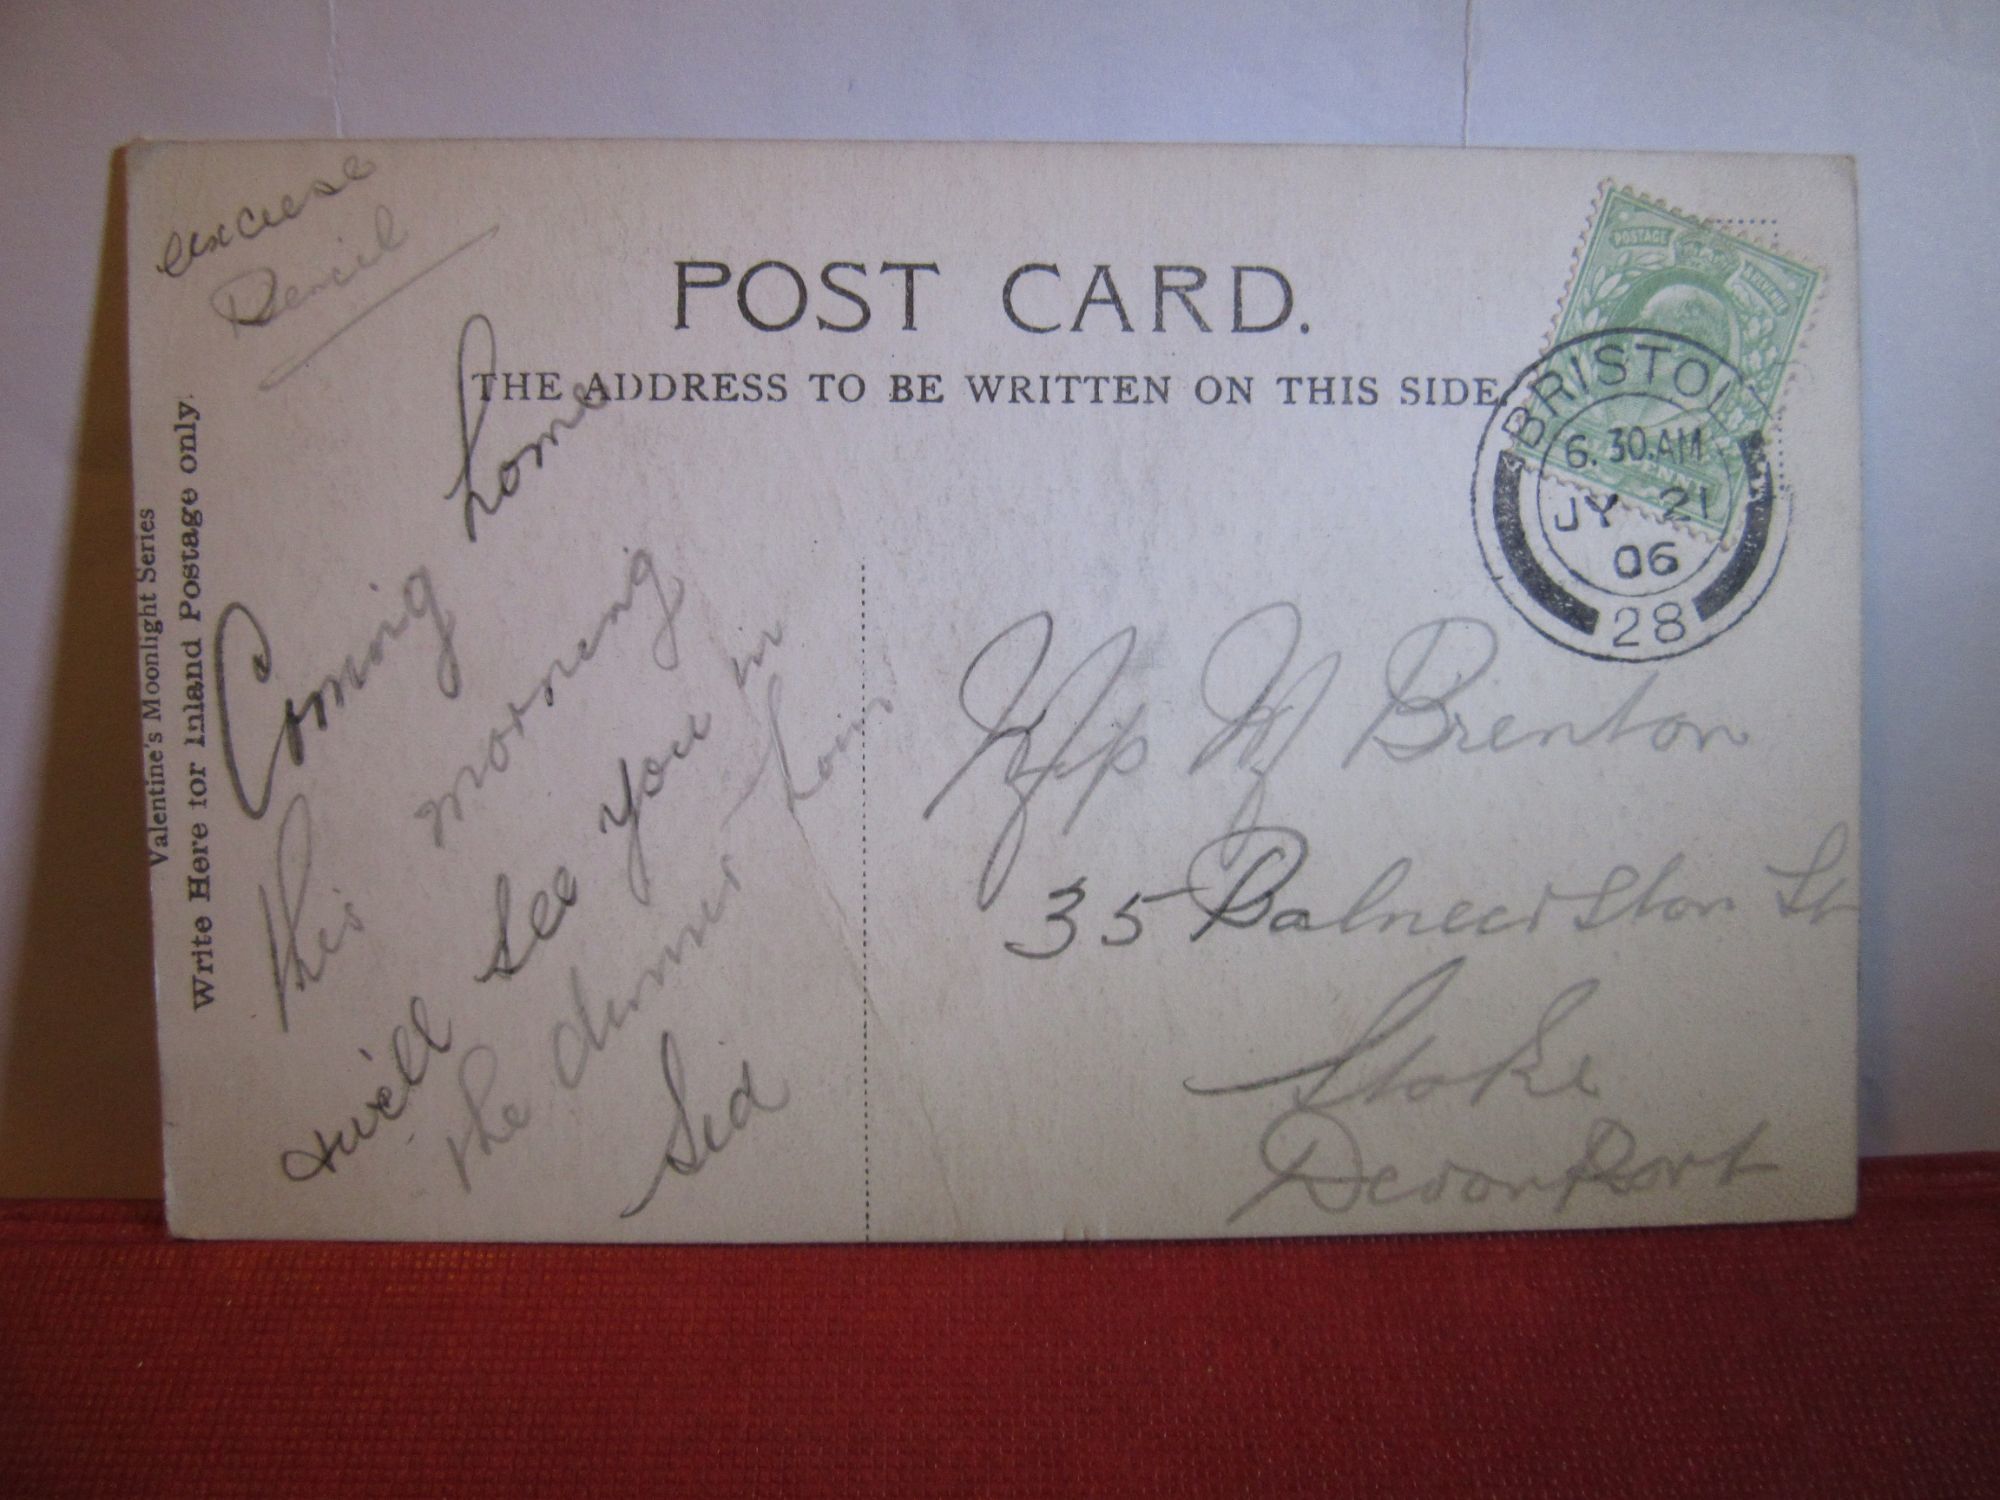 excuse
Pencil
POST CARD.
THE ADDRESS TO BE WRITTEN ON THIS SIDE.
Valentine's Moonlight Series
Write Here for Inland Postage only.
Coming home
this morning
will see you in
the dinner hour
Sid
POSTAGE REVENUE
BRISTOL
6.30.AM
JY 21
06
28
W Brenton
35 St
Stoke
Devonport